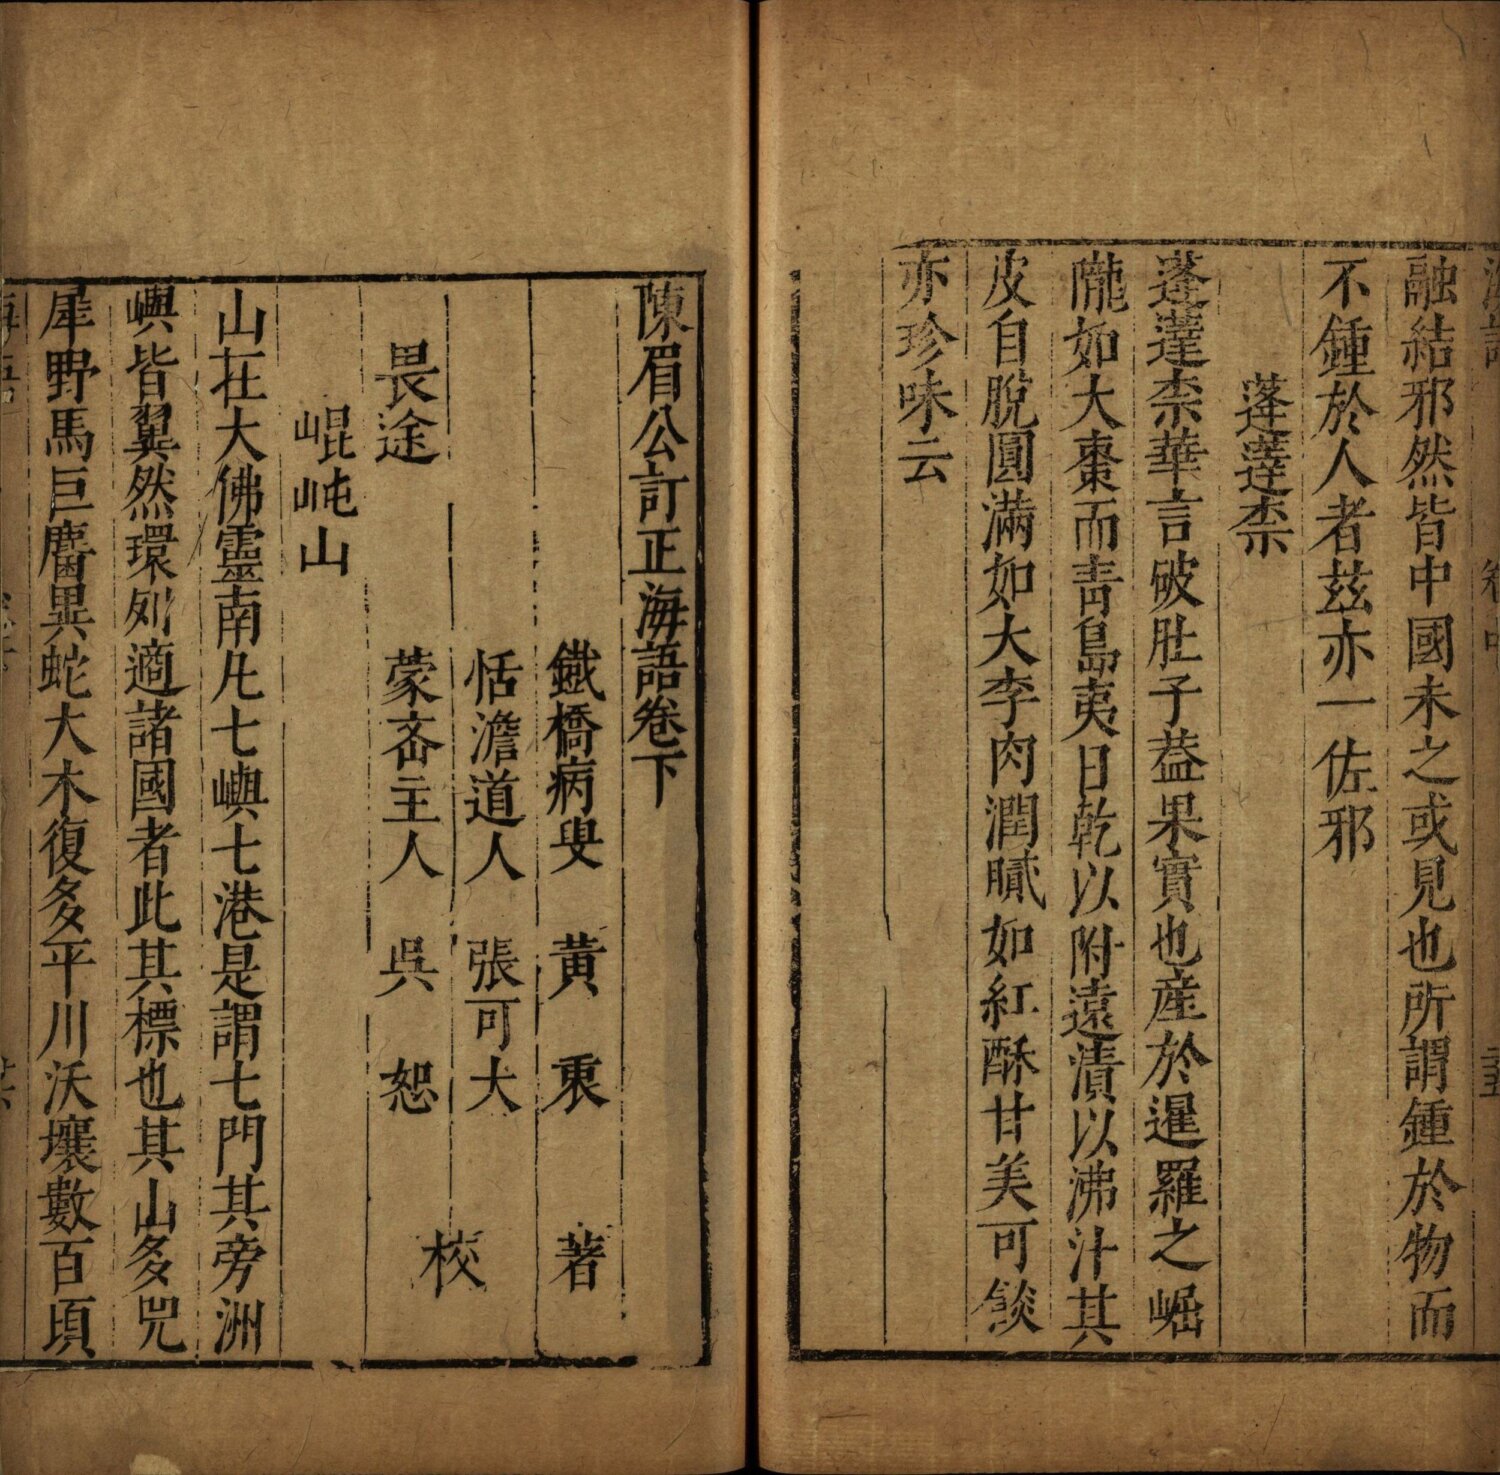 融結邪然皆中國未之或見也所謂鍾於物而
不鍾於人者茲亦一佐邪
蓬蓬柰
蓬蓬柰華言破肚子葢果實也産於暹羅之崛
隴如大棗而青島夷日乾以附遠漬以沸汁其
皮自脫圓滿如大李肉潤膩如紅酥甘美可餤
亦珍味云
陳眉公訂正海語卷下
鐵橋病叟 黄衷 著
恬澹道人 張可大
校
蒙斎主人 吳恕
畏途
崐屯山
山在大佛靈南凢七嶼七港是謂七門其旁洲
嶼皆翼然環列適諸國者此其標也其山多兕
犀野馬巨麕異蛇大木復多平川沃壤數百頃